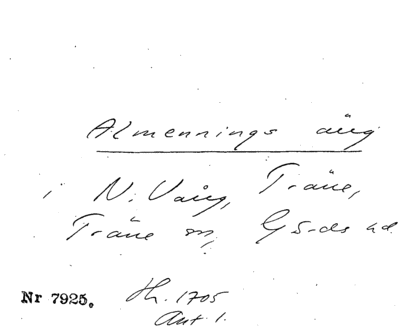 Almennings äng
i N. Vång, Träne,
Träne sn, Gärds hd.
Nr 7925. Hh. 1705
Akt 1.